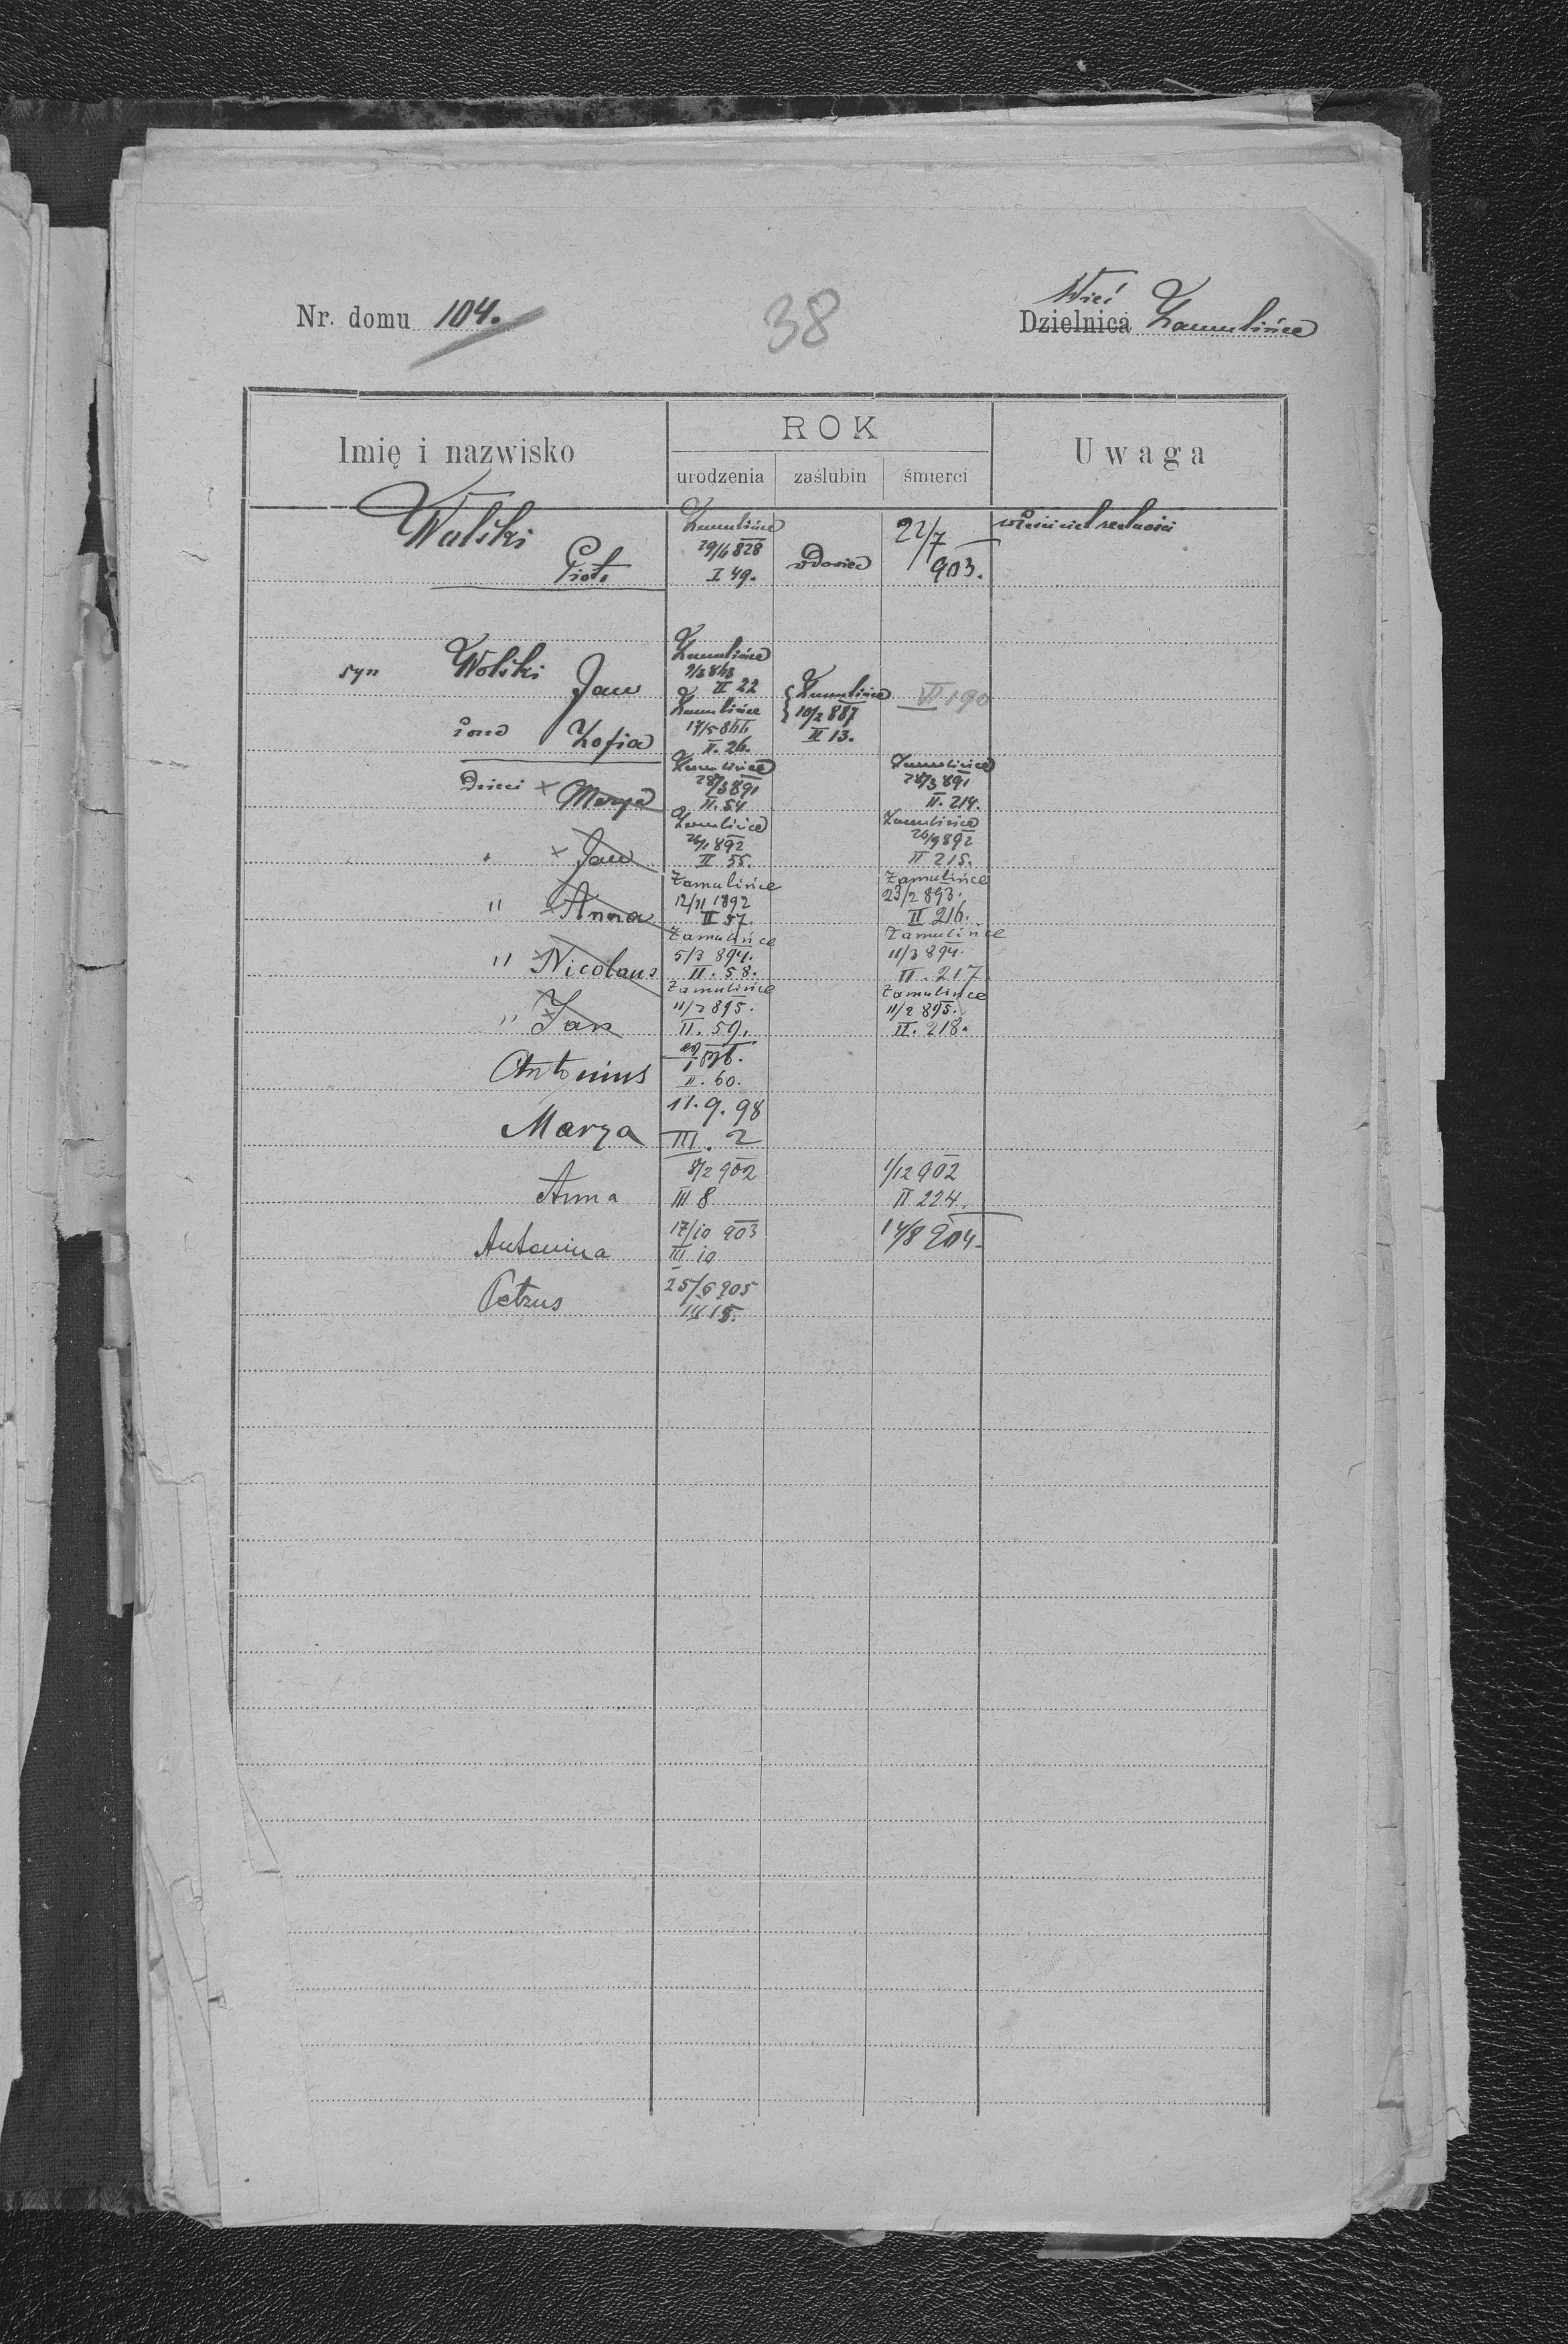 Wieś
Nr. domu 104. 38 Dzielnica Zamulińce
Imię i nazwisko ROK Uwaga
urodzenia zaślubin śmierci
Wolski Piotr
Zamulińce
29/6 828
I 49.
wdowiec
22/7
903.
właściciel realności
syn Wolski Jan
Zamulińce
9/3 863
II 22
Zamulińce
10/2 887
II 13.
VI 190
żona Zofia
Zamulińce
17/5 866
II. 26.
Dzieci × Marya
Zamulińce
28/3 891
II. 54
Zamulińce
28/3 891
II. 214.
" × Jan
Zamulińce
26/1 892
II 55.
Zamulińce
26/9 892
II 215.
" × Anna
Zamulińce
12/11 1892
II 57.
Zamulińce
23/2 893.
II 216.
" × Nicolaus
Zamulińce
5/3 894.
II. 58.
Zamulińce
11/3 894.
II. 217.
" × Jan
Zamulińce
11/2 895.
II. 59.
Zamulińce
11/2 895.
II. 218.
Antonius
II. 60.
Marya
11. 9. 98
III. 2
Anna
8/2 902
III 8
1/12 902
II 224.
Antonina
17/10 903
III 10
14/8 904
Petrus
25/6 905
III 15.